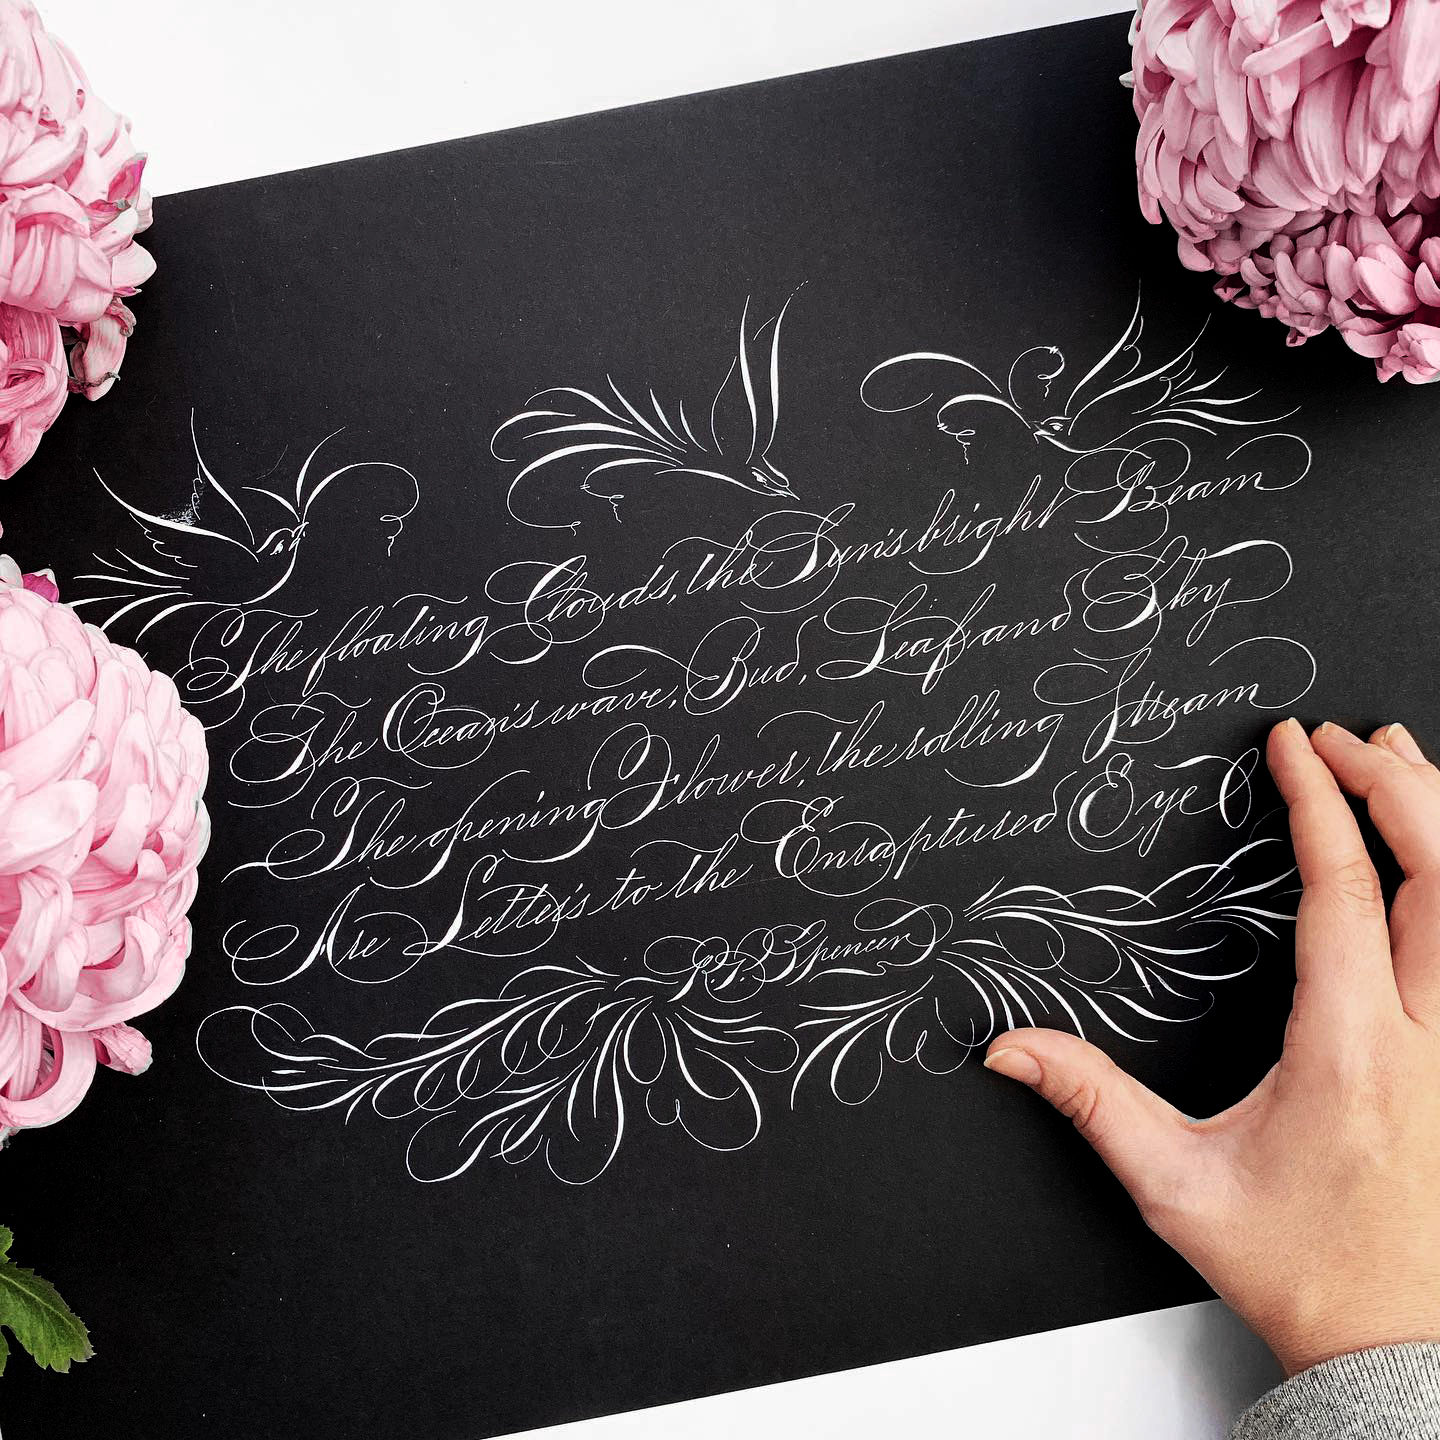 The floating Clouds, the Sun's bright Beam
The Ocean's wave, Bud, Leaf and Sky
The opening Flower, the rolling Stream
Are Letters to the Enraptured Eye
P.R. Spencer